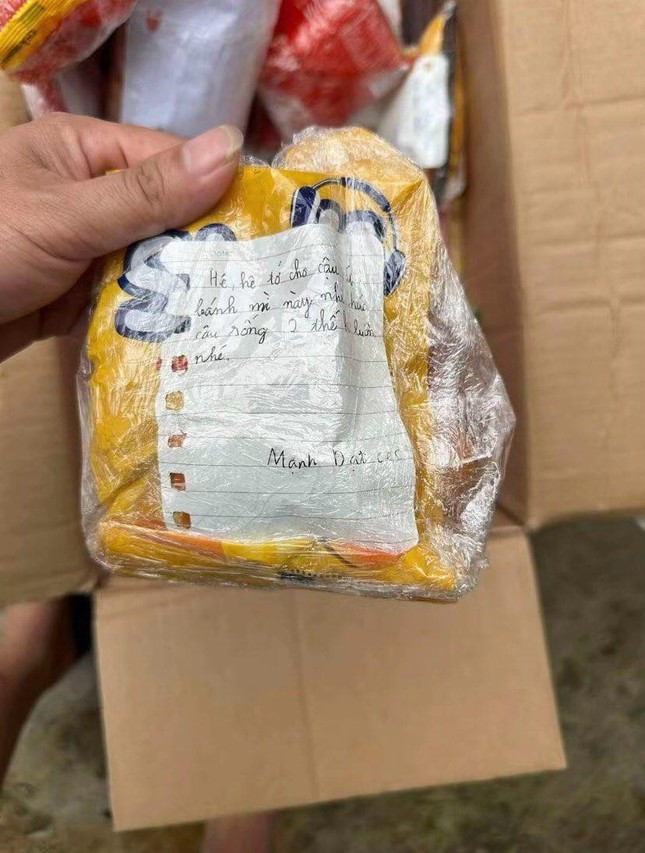 Hê, hê tớ cho cậu
bánh mì này nhé
cậu sống 2 thế luôn
nhé.
Mạnh Đạt